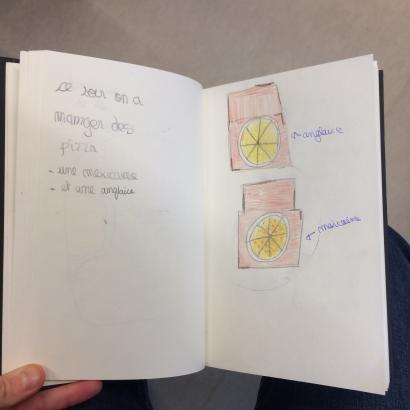 ce soir on a
manger des
pizza
- une mexicaine
- et une anglaice
anglaice
mexicaine